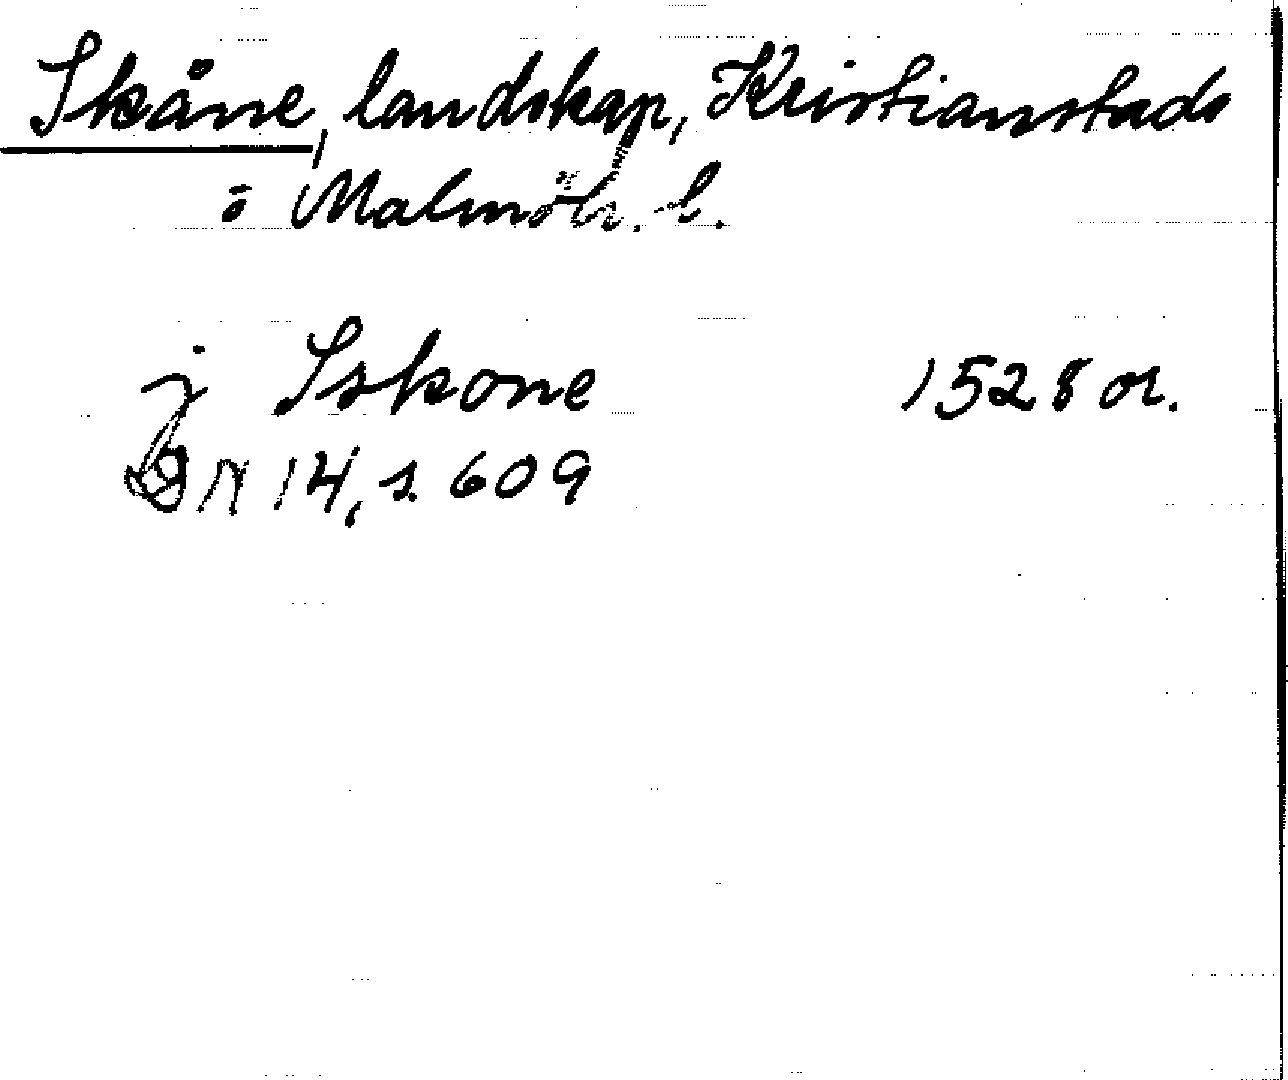 Skåne, landskap, Kristianstads
o Malmöh. l.
j Sskone 1528 or.
DN 14, s. 609